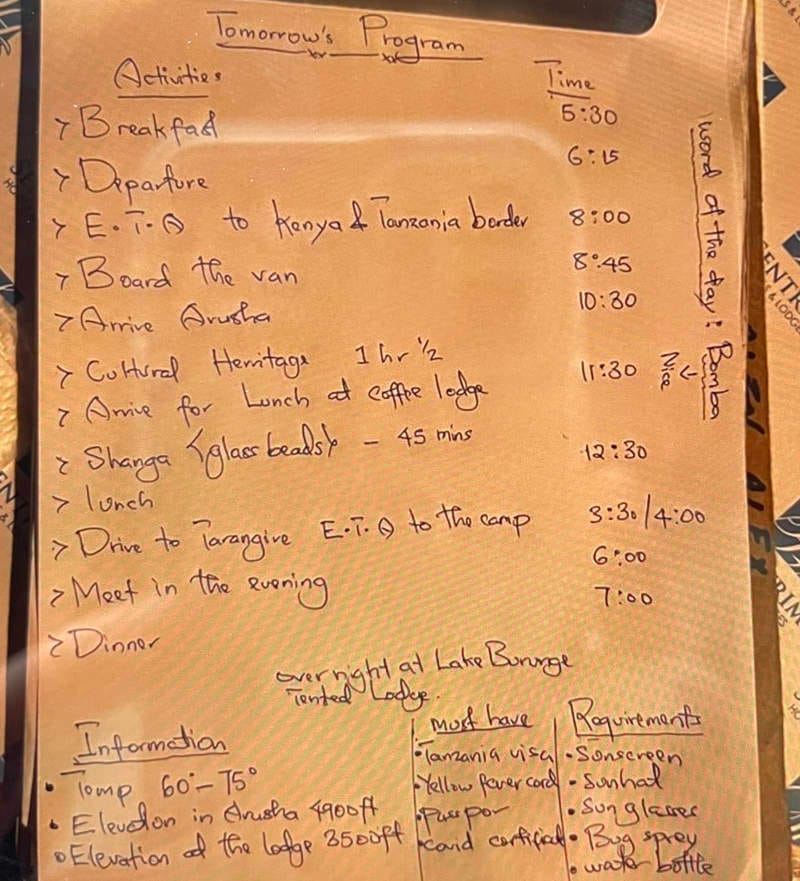 Tomorrow's Program
Activities Time
> Breakfast 5:30
> Departure 6:15
> E.T.A to Kenya & Tanzania border 8:00
> Board the van 8:45
> Arrive Arusha 10:30
> Cultural Herritage 1 hr ½
> Arrive for Lunch at coffee lodge 11:30
> Shanga (glass beads) - 45 mins
> lunch 12:30
> Drive to Tarangire E.T.A to the camp 3:30/4:00
> Meet in the evening 6:00
> Dinner 7:00
overnight at Lake Burunge
Tented Lodge.
word of the day: Bomba
← Nice
Information
• Temp 60°-75°
• Elevation in Arusha 4900ft
• Elevation at the lodge 3500ft
must have
• Tanzania visa
• Yellow fever card
• Passpor
• Covid certificat
Requirements
• Sunscreen
• Sunhat
• Sunglasses
• Bug sprey
• water bottle